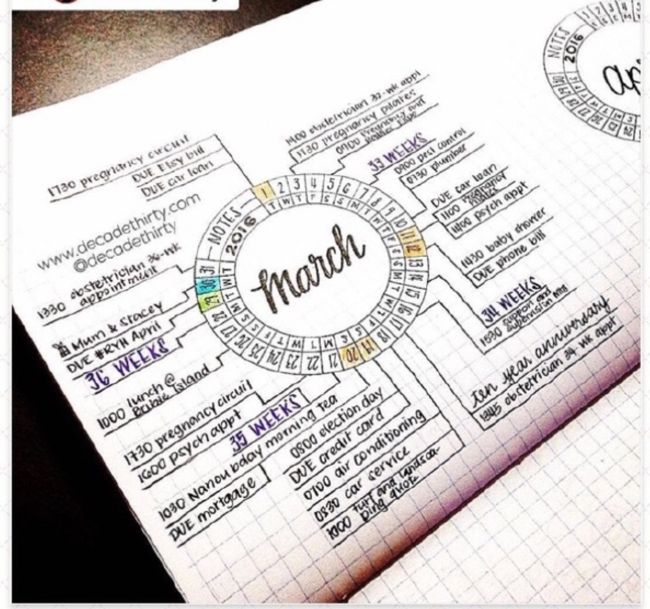 1730 pregnancy circuit
DUE Elsy bill
DUE car loan
www.decadethirty.com
@decadethirty
1330 obstetrician 36-wk
appointment
Mum & Stacey
DUE #RYH April
36 WEEKS
1000 lunch @
Bribie Island
1730 pregnancy circuit
1600 psych appt
35 WEEKS
1030 Nanou bday morning tea
DUE mortgage
0800 election day
DUE credit card
0700 air conditioning
0830 car service
1000 turf and landsca
ping quote
1400 obstetrician 32-wk appt
1730 pregnancy pilates
0900 pregnancy and
33 WEEKS
0900 pest control
0730 plumber
DUE car loan
1100 pregnancy
pilates
1400 psych appt
1430 baby shower
DUE phone bill
34 WEEKS
1530 support and
supervision mtg
ten year anniversary
1345 obstetrician 34 wk appt
NOTES
2016
march
1 2 3 4 5 6 7 8 9 10 11 12 13 14 15 16 17 18 19 20 21 22 23 24 25 26 27 28 29 30 31
T W T F S S M T W T F S S M T W T F S S M T W T F S S M T W T
NOTES
2016
ap